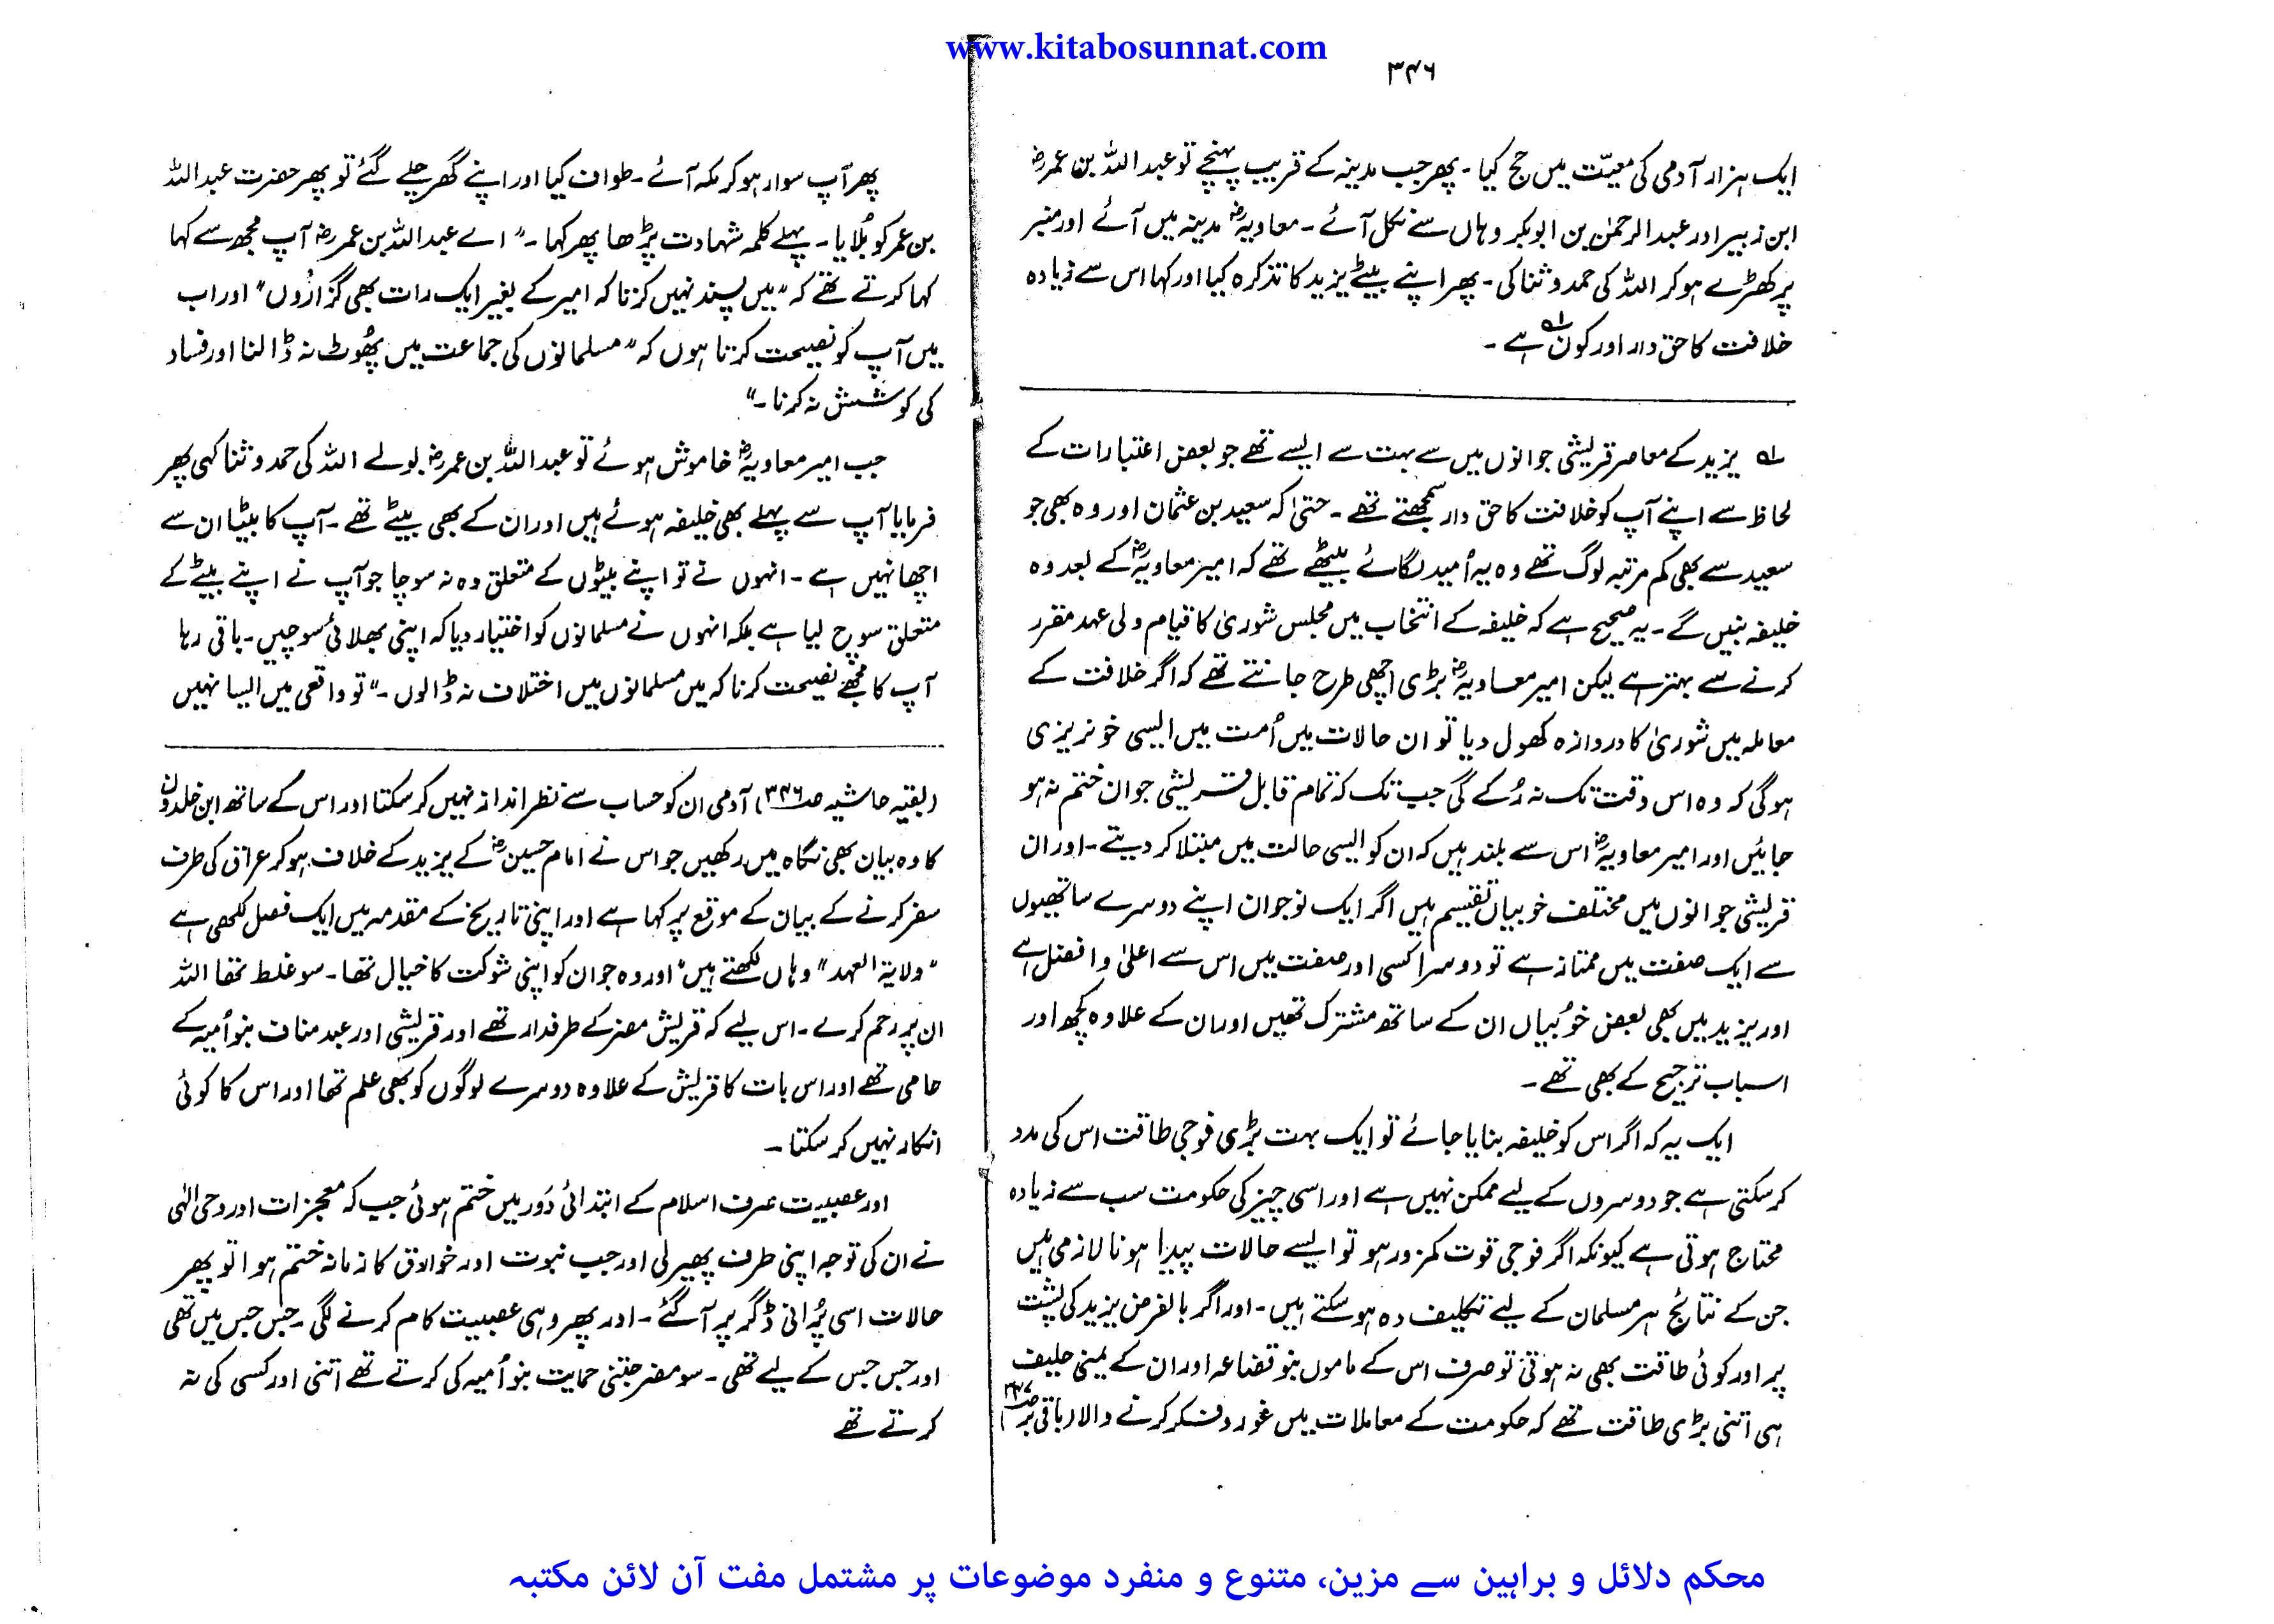 www.kitabosunnat.com
۳۴۶
ایک ہزار آدمی کی معیّت میں حج کیا۔ پھر جب مدینہ کے قریب پہنچے تو عبداللہ بن عمرؓ
ابن زبیر اور عبدالرحمٰن بن ابوبکر وہاں سے نکل آئے۔ معاویہؓ مدینہ میں آئے اور منبر
پر کھڑے ہو کر اللہ کی حمد و ثنا کی۔ پھر اپنے بیٹے یزید کا تذکرہ کیا اور کہا اس سے زیادہ
خلافت کا حق دار اور کون ہے۔ ؎۱
؎۱ یزید کے معاصر قریشی جوانوں میں سے بہت سے ایسے تھے جو بعض اعتبارات کے
لحاظ سے اپنے آپ کو خلافت کا حق دار سمجھتے تھے۔ حتیٰ کہ سعید بن عثمان اور وہ بھی جو
سعید سے بھی کم مرتبہ لوگ تھے وہ یہ اُمید لگائے بیٹھے تھے کہ امیر معاویہؓ کے بعد وہ
خلیفہ بنیں گے۔ یہ صحیح ہے کہ خلیفہ کے انتخاب میں مجلس شوریٰ کا قیام ولی عہد مقرر
کرنے سے بہتر ہے لیکن امیر معاویہؓ بڑی اچھی طرح جانتے تھے کہ اگر خلافت کے
معاملہ میں شوریٰ کا دروازہ کھول دیا تو ان حالات میں اُمت میں ایسی خونریزی
ہو گی کہ وہ اس وقت تک نہ رُکے گی جب تک کہ تمام قابل قریشی جوان ختم نہ ہو
جائیں اور امیر معاویہؓ اس سے بلند ہیں کہ ان کو ایسی حالت میں مبتلا کر دیتے۔ اور ان
قریشی جوانوں میں مختلف خوبیاں تقسیم ہیں اگر ایک نوجوان اپنے دوسرے ساتھیوں
سے ایک صفت میں ممتاز ہے تو دوسرا کسی اور صفت میں اس سے اعلیٰ و افضل ہے
اور یزید میں بھی بعض خوُبیاں ان کے ساتھ مشترک تھیں اور ان کے علاوہ کچھ اور
اسباب ترجیح کے بھی تھے۔
ایک یہ کہ اگر اس کو خلیفہ بنایا جائے تو ایک بہت بڑی فوجی طاقت اس کی مدد
کر سکتی ہے جو دوسروں کے لیے ممکن نہیں ہے اور اسی چیز کی حکومت سب سے زیادہ
محتاج ہوتی ہے کیونکہ اگر فوجی قوت کمزور ہو تو ایسے حالات پیدا ہونا لازمی ہیں
جن کے نتائج ہر مسلمان کے لیے تکلیف دہ ہو سکتے ہیں۔ اور اگر بالفرض یزید کی پشت
پر اور کوئی طاقت بھی نہ ہوتی تو صرف اس کے ماموں بنو قضاعہ اور ان کے یمنی حلیف
ہی اتنی بڑی طاقت تھے کہ حکومت کے معاملات میں غور و فکر کرنے والا (باقی بر ص۳۴۷)
پھر آپ سوار ہو کر مکہ آئے۔ طواف کیا اور اپنے گھر چلے گئے تو پھر حضرت عبداللہ
بن عمر کو بُلایا۔ پہلے کلمہ شہادت پڑھا پھر کہا۔ "اے عبداللہ بن عمرؓ آپ مجھ سے کہا
کہا کرتے تھے کہ "میں پسند نہیں کرتا کہ امیر کے بغیر ایک رات بھی گزاروُں" اور اب
میں آپ کو نصیحت کرتا ہوں کہ "مسلمانوں کی جماعت میں پھُوٹ نہ ڈالنا اور فساد
کی کوشش نہ کرنا۔"
جب امیر معاویہؓ خاموش ہوئے تو عبداللہ بن عمرؓ بولے اللہ کی حمد و ثنا کہی پھر
فرمایا آپ سے پہلے بھی خلیفہ ہوئے ہیں اور ان کے بھی بیٹے تھے۔ آپ کا بیٹا ان سے
اچھا نہیں ہے۔ انہوں نے تو اپنے بیٹوں کے متعلق وہ نہ سوچا جو آپ نے اپنے بیٹے کے
متعلق سوچ لیا ہے بلکہ انہوں نے مسلمانوں کو اختیار دیا کہ اپنی بھلائی سوچیں۔ باقی رہا
آپ کا مجھے نصیحت کرنا کہ میں مسلمانوں میں اختلاف نہ ڈالوں۔" تو واقعی میں ایسا نہیں
(بقیہ حاشیہ ص۳۴۶) آدمی ان کو حساب سے نظر انداز نہیں کر سکتا اور اس کے ساتھ ابن خلدون
کا وہ بیان بھی نگاہ میں رکھیں جو اس نے امام حسینؓ کے یزید کے خلاف ہو کر عراق کی طرف
سفر کرنے کے بیان کے موقع پر کہا ہے اور اپنی تاریخ کے مقدمہ میں ایک فصل لکھی ہے
"ولایۃ العہد" وہاں لکھتے ہیں" اور وہ جو ان کو اپنی شوکت کا خیال تھا۔ سو غلط تھا اللہ
ان پر رحم کرے۔ اس لیے کہ قریش مضر کے طرفدار تھے اور قریشی اور عبد مناف بنو اُمیہ کے
حامی تھے اور اس بات کا قریش کے علاوہ دوسرے لوگوں کو بھی علم تھا اور اس کا کوئی
انکار نہیں کر سکتا۔
اور عصبیت صرف اسلام کے ابتدائی دَور میں ختم ہوئی جب کہ معجزات اور وحی الٰہی
نے ان کی توجہ اپنی طرف پھیر لی اور جب نبوت اور خوارق کا زمانہ ختم ہوا تو پھر
حالات اسی پُرانی ڈگر پر آ گئے۔ اور پھر وہی عصبیت کام کرنے لگی۔ جس جس میں تھی
اور جس جس کے لیے تھی۔ سو مضر جتنی حمایت بنو اُمیہ کی کرتے تھے اتنی اور کسی کی نہ
کرتے تھے
محکم دلائل و براہین سے مزین، متنوع و منفرد موضوعات پر مشتمل مفت آن لائن مکتبہ